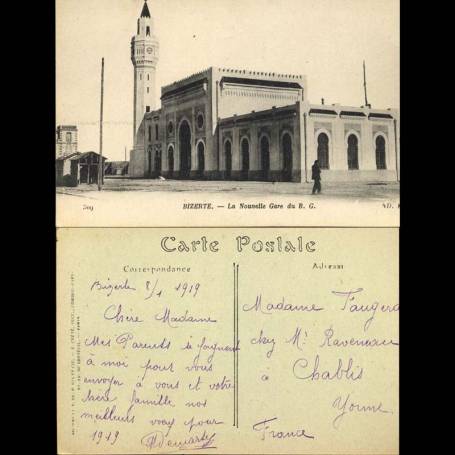 509 BIZERTE. — La Nouvelle Gare du B. G. ND.
Carte Postale
Correspondance
Adresse
Bizerte 8/1 1919
Chère Madame
Mes Parents se joignent
à moi pour vous
envoyer à vous et votre
chère famille nos
meilleurs vœux pour
1919
Madame
chez Mr Raveneau
à
Chablis
Yonne
France